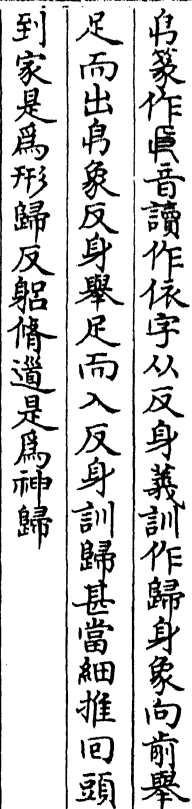 㐆篆作𠂣音讀作依字从反身義訓作歸身象向前舉
足而出㐆象反身舉足而入反身訓歸甚當細推回頭
到家是爲形歸反躬脩道是爲神歸